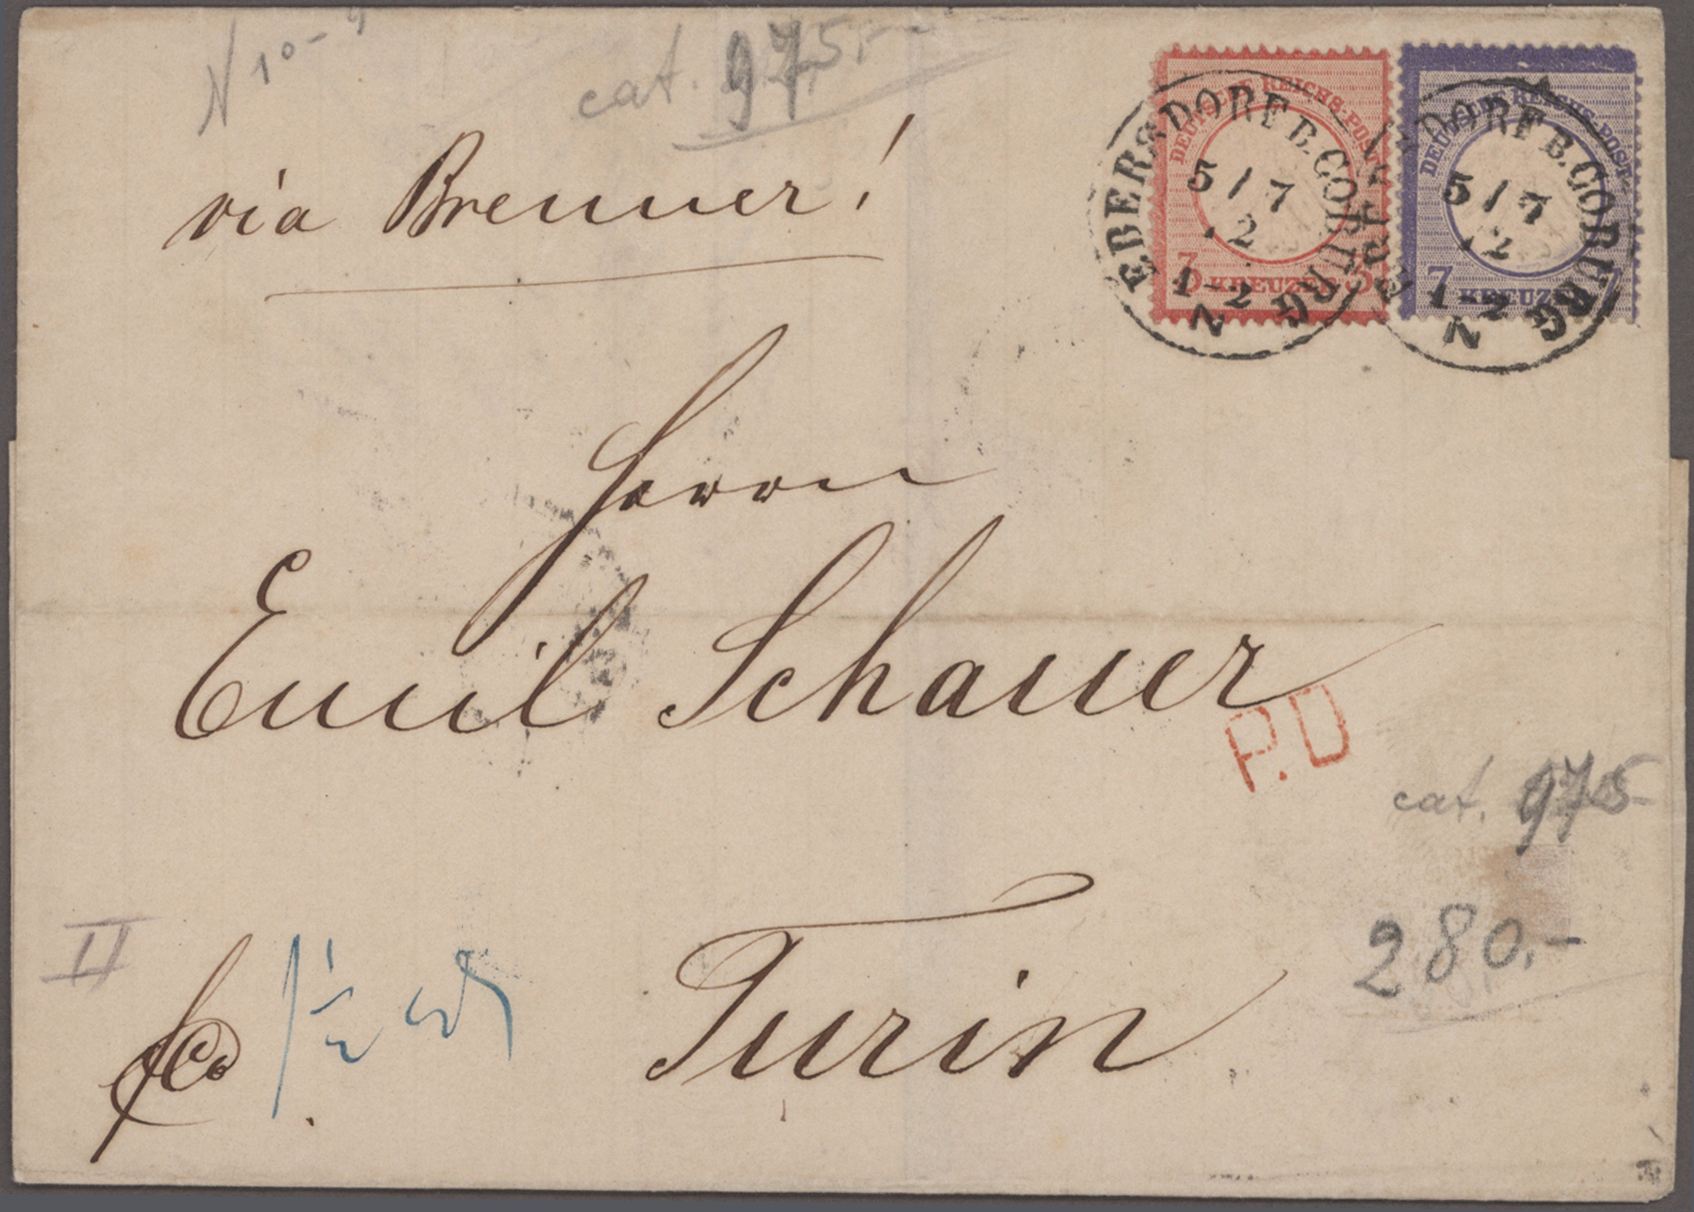 N 10-
cat. 975.-
via Brenner!
DEUTSCHE REICHS-POST
3 KREUZER 3
DEUTSCHE REICHS-POST
7 KREUZER
EBERSDORF B. COBURG
5 / 7
2
1-2
N
EBERSDORF B. COBURG
5 / 7
2
1-2
N
Herrn
Emil Schauer
P.D
cat. 975
280.-
II
fco
Turin